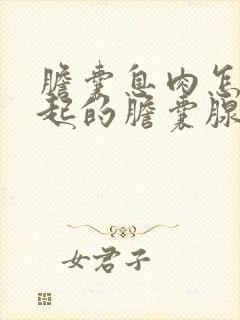 膽囊息肉怎
起的膽囊腺
女君子